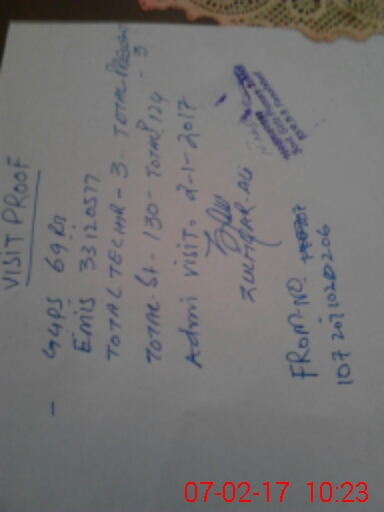 VISIT PROOF
- GGPS 69 RB
Emis 33120577
TOTAL TECHIR - 3 - TOTAL PRESENT - 3
TOTAL St - 130 - TOTAL P 124
Admi VISIT. 2-1-2017
ZULFIQAR-ALI
FROM-NO.
107 201702D206
07-02-17 10:23